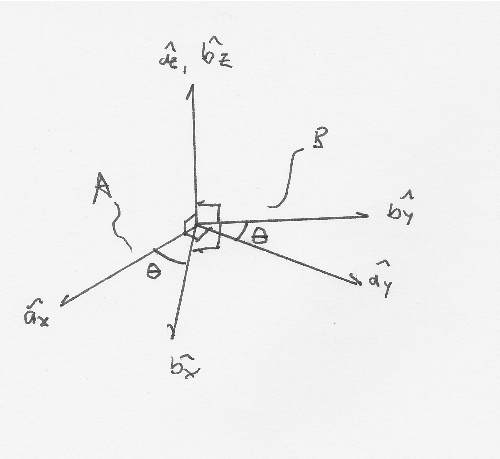 âz, b̂z
B
A
b̂y
θ
ây
θ
âx
b̂x